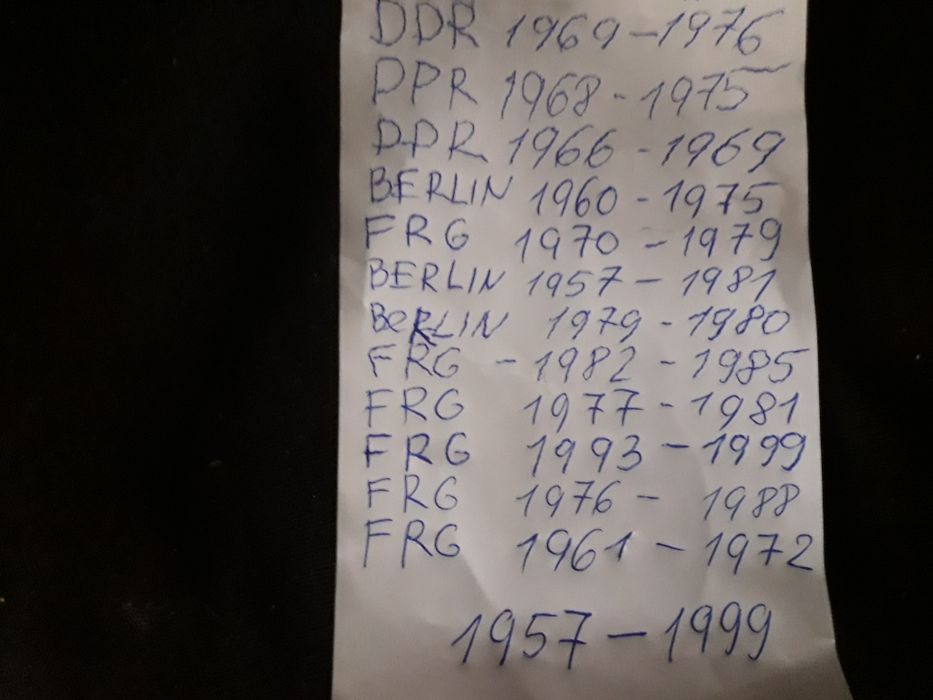 DDR 1969-1976
DDR 1968-1975
DDR 1966-1969
BERLIN 1960-1975
FRG 1970-1979
BERLIN 1957-1981
BeRLIN 1979-1980
FRG - 1982-1985
FRG 1977-1981
FRG 1993-1999
FRG 1976-1988
FRG 1961-1972
1957-1999